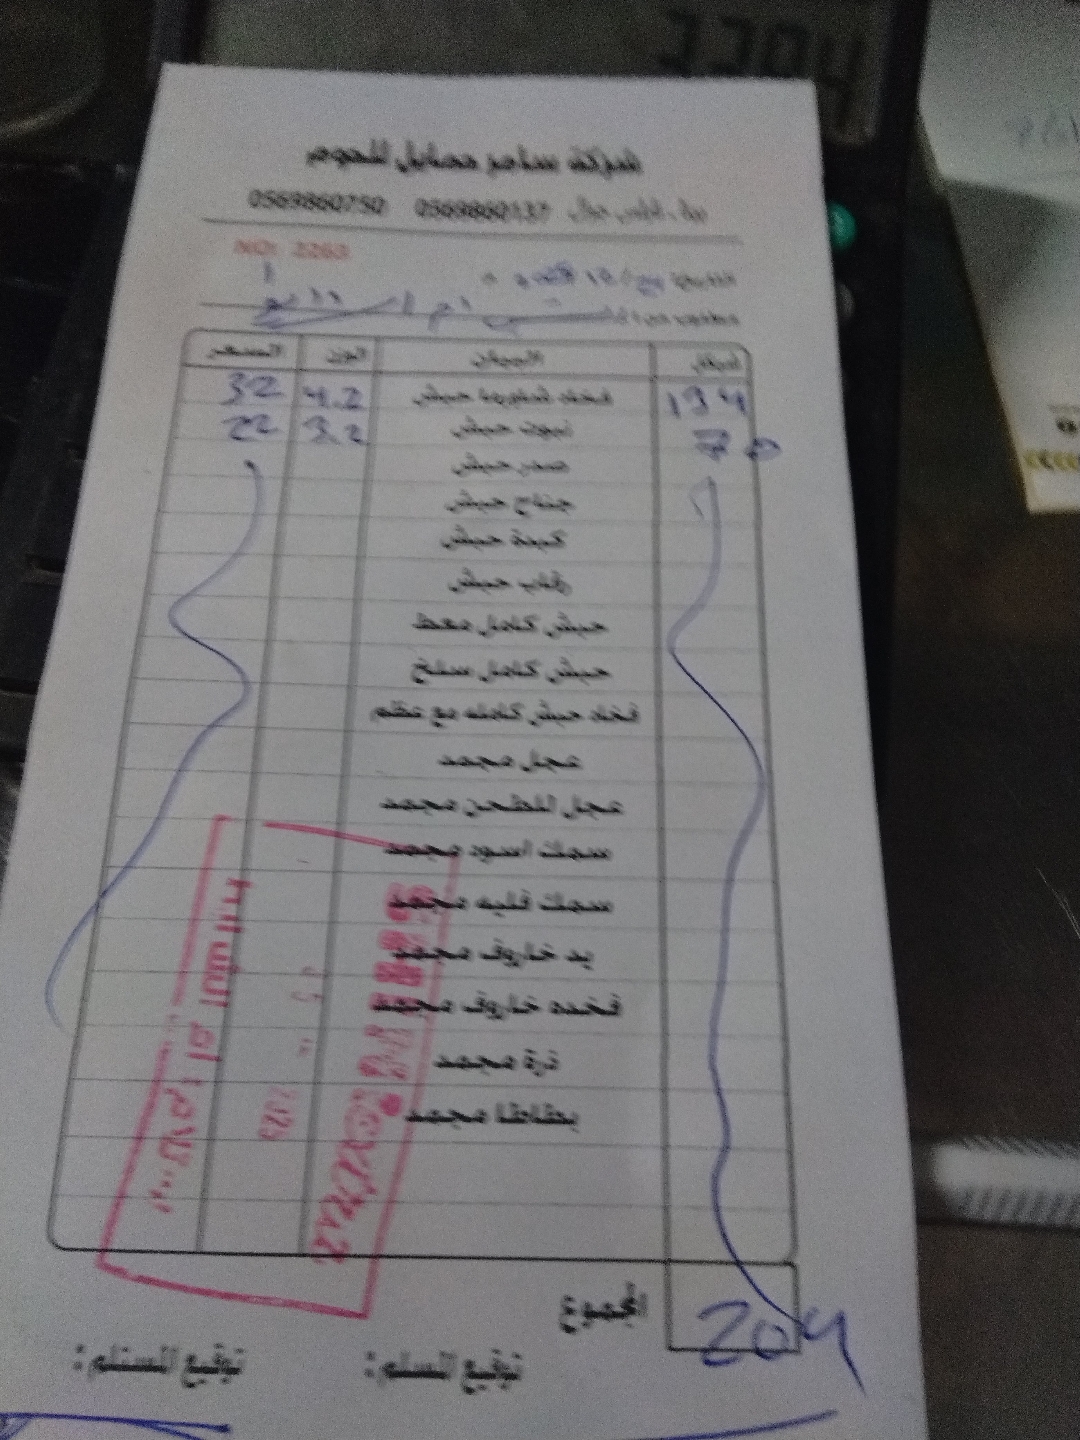 2204
شركة سامر حمايل للحوم
0569860137 0569860750
NO: 2263
التاريخ
المطلوب من
شيكل البيان الوزن السعر
134 فخاد شاورما حبش 4.2 32
70 دبوت حبش 3.2 22
صدر حبش
جناح حبش
كبدة حبش
رقاب حبش
حبش كامل معط
حبش كامل سلخ
فخاد حبش كامله مع عظم
عجل مجمد
عجل للطحن مجمد
سمك اسود مجمد
سمك فليه مجمد
يد خاروف مجمد
فخده خاروف مجمد
ذرة مجمد
بطاطا مجمد
المجموع 204
توقيع المسلم : توقيع المستلم :